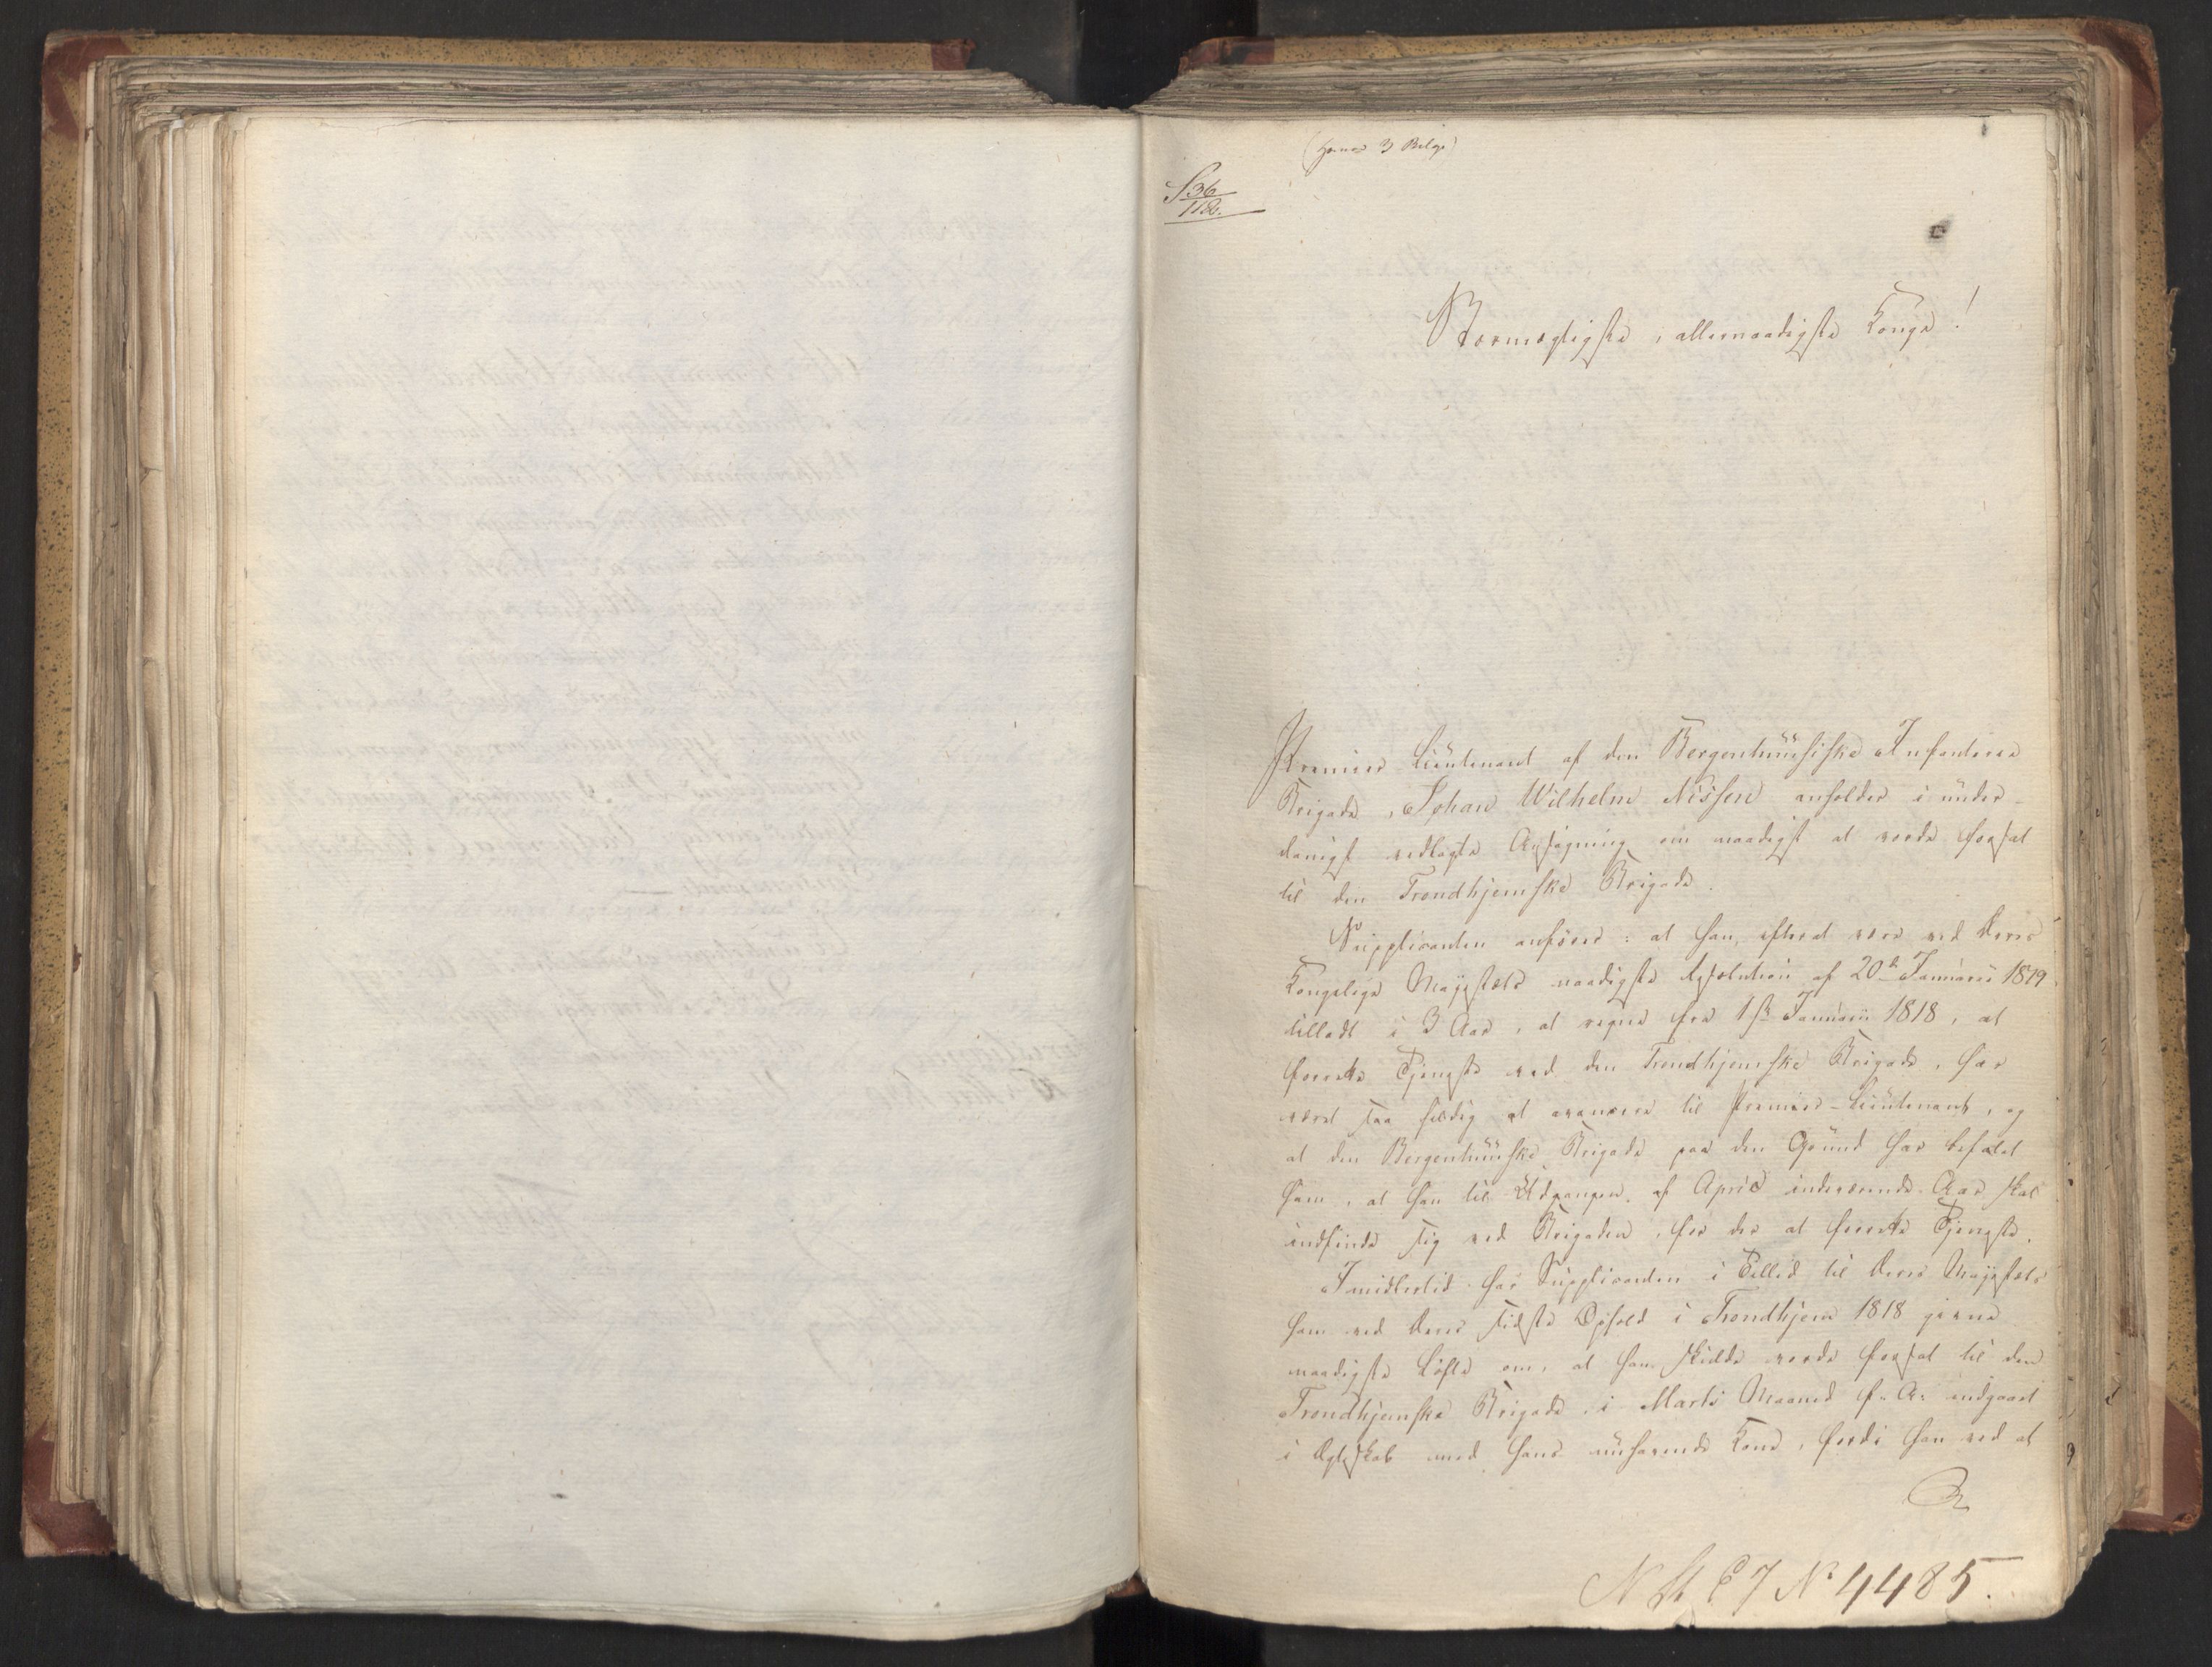 (Hermed 3 Bilage)
S 36
118.
Stormægtigste, allernaadigste Konge!
Premier Lieutenant af den Bergenhuusiske Infanterie
Brigade, Johan Wilhelm Nissen anholder i under-
danigst vedlagte Ansøgning om naadigst at vorde forsat
til den Trondhjemske Brigade.
Supplicanten anfører: at han, efterat være ved Deres
Kongelige Majestæts naadigste Resolution af 20de Januarii 1819
tilladt i 3 Aar, at regne fra 1ste Januarii 1818, at
forrette Tjeneste ved den Trondhjemske Brigade, har
været saa heldig at avancere til Premier-Lieutenant, og
at den Bergenhuusske Brigade paa den Grund har befalet
ham, at han til Udgangen af April indeværende Aar skal
indfinde sig ved Brigaden, for der at forrette Tjeneste.
Imidlertid har Supplicanten i Tillid til Deres Majestæts
ham ved Deres sidste Ophold i Trondhjem 1818 givne
naadigste Løfte om, at han skulde vorde forsat til den
Trondhjemske Brigade, i Marts Maaned f. A. indgaaet
i Ægteskab med hans nuhavende Kone, fordi han ved at
N 4485.